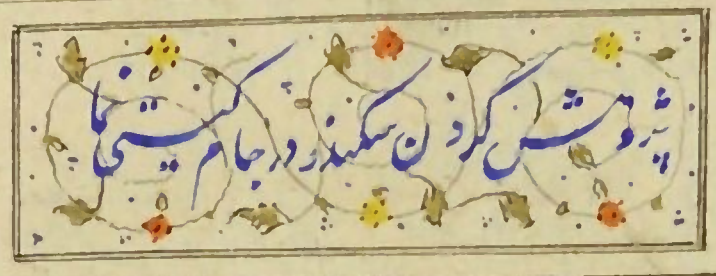 پژوهش کردن سکندر در جام گیتی نما